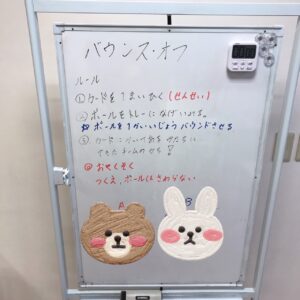 バウンス・オフ
ルール
①カードを1まいひく(せんせい)
②ボールをトレーになげいれる。
ボールを1かいいじょうバウンドさせる
③カードに
できたチームのかち!
◎おやくそく
つくえ、ボールはさわらない
A
B